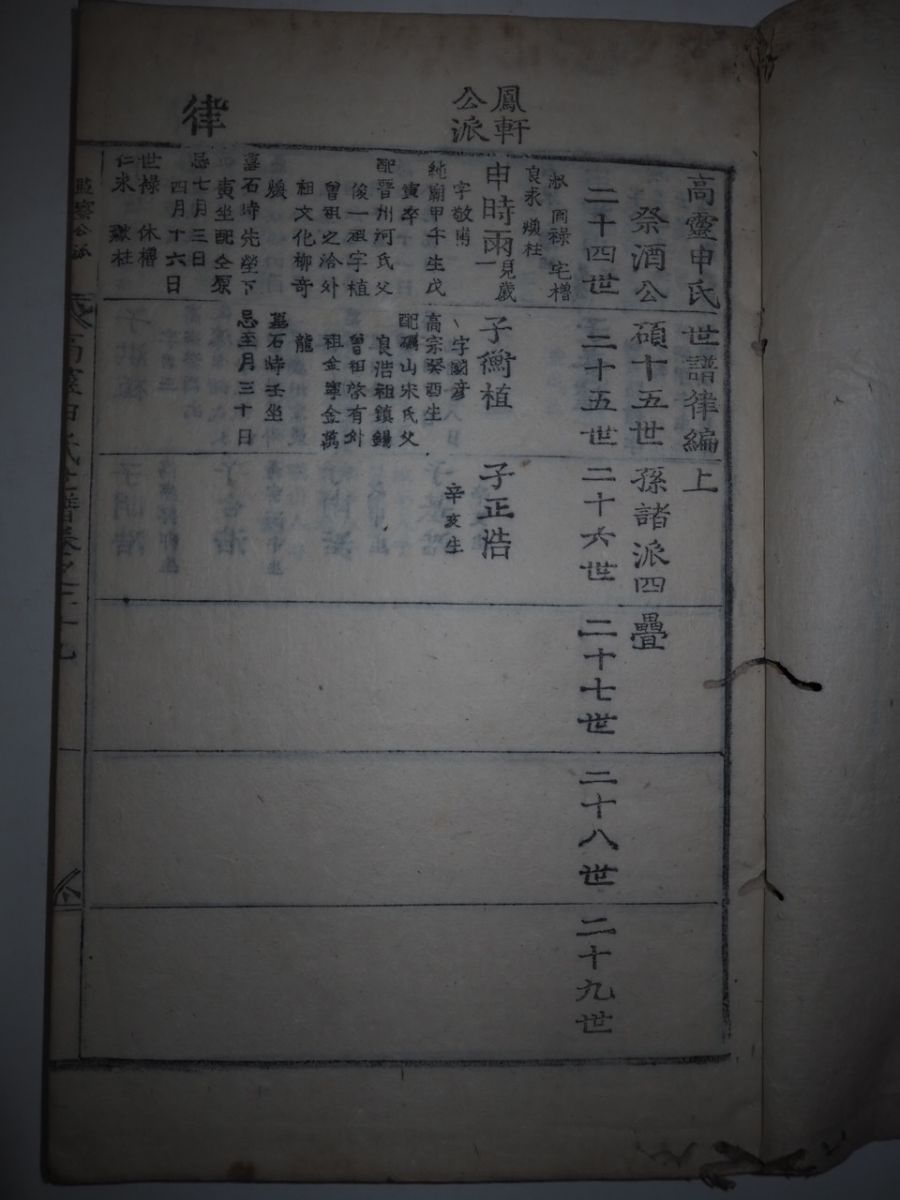 鳳軒
公派
律
高靈申氏世譜律編上
祭酒公碩十五世孫諸派四疊
二十四世
二十五世
二十六世
二十七世
二十八世
二十九世
祿 宅櫓
良求 煥柱
申時雨 見歲
字敬甫
純廟甲午生戊
寅卒
配晋州河氏父
俊一祖字植
曾祖之洽外
祖文化柳奇
煖
墓石時先塋下
寅坐配仝原
忌七月三日
四月十六日
世祿 休櫓
仁求 柱
子衡植
字國彦
高宗癸酉生
配礪山宋氏父
良浩祖鎮錫
曾祖啓有外
祖金寧金萬
龍
墓石時壬坐
忌至月三十日
子正浩
辛亥生
監察公派
高靈申氏世譜卷之三十九